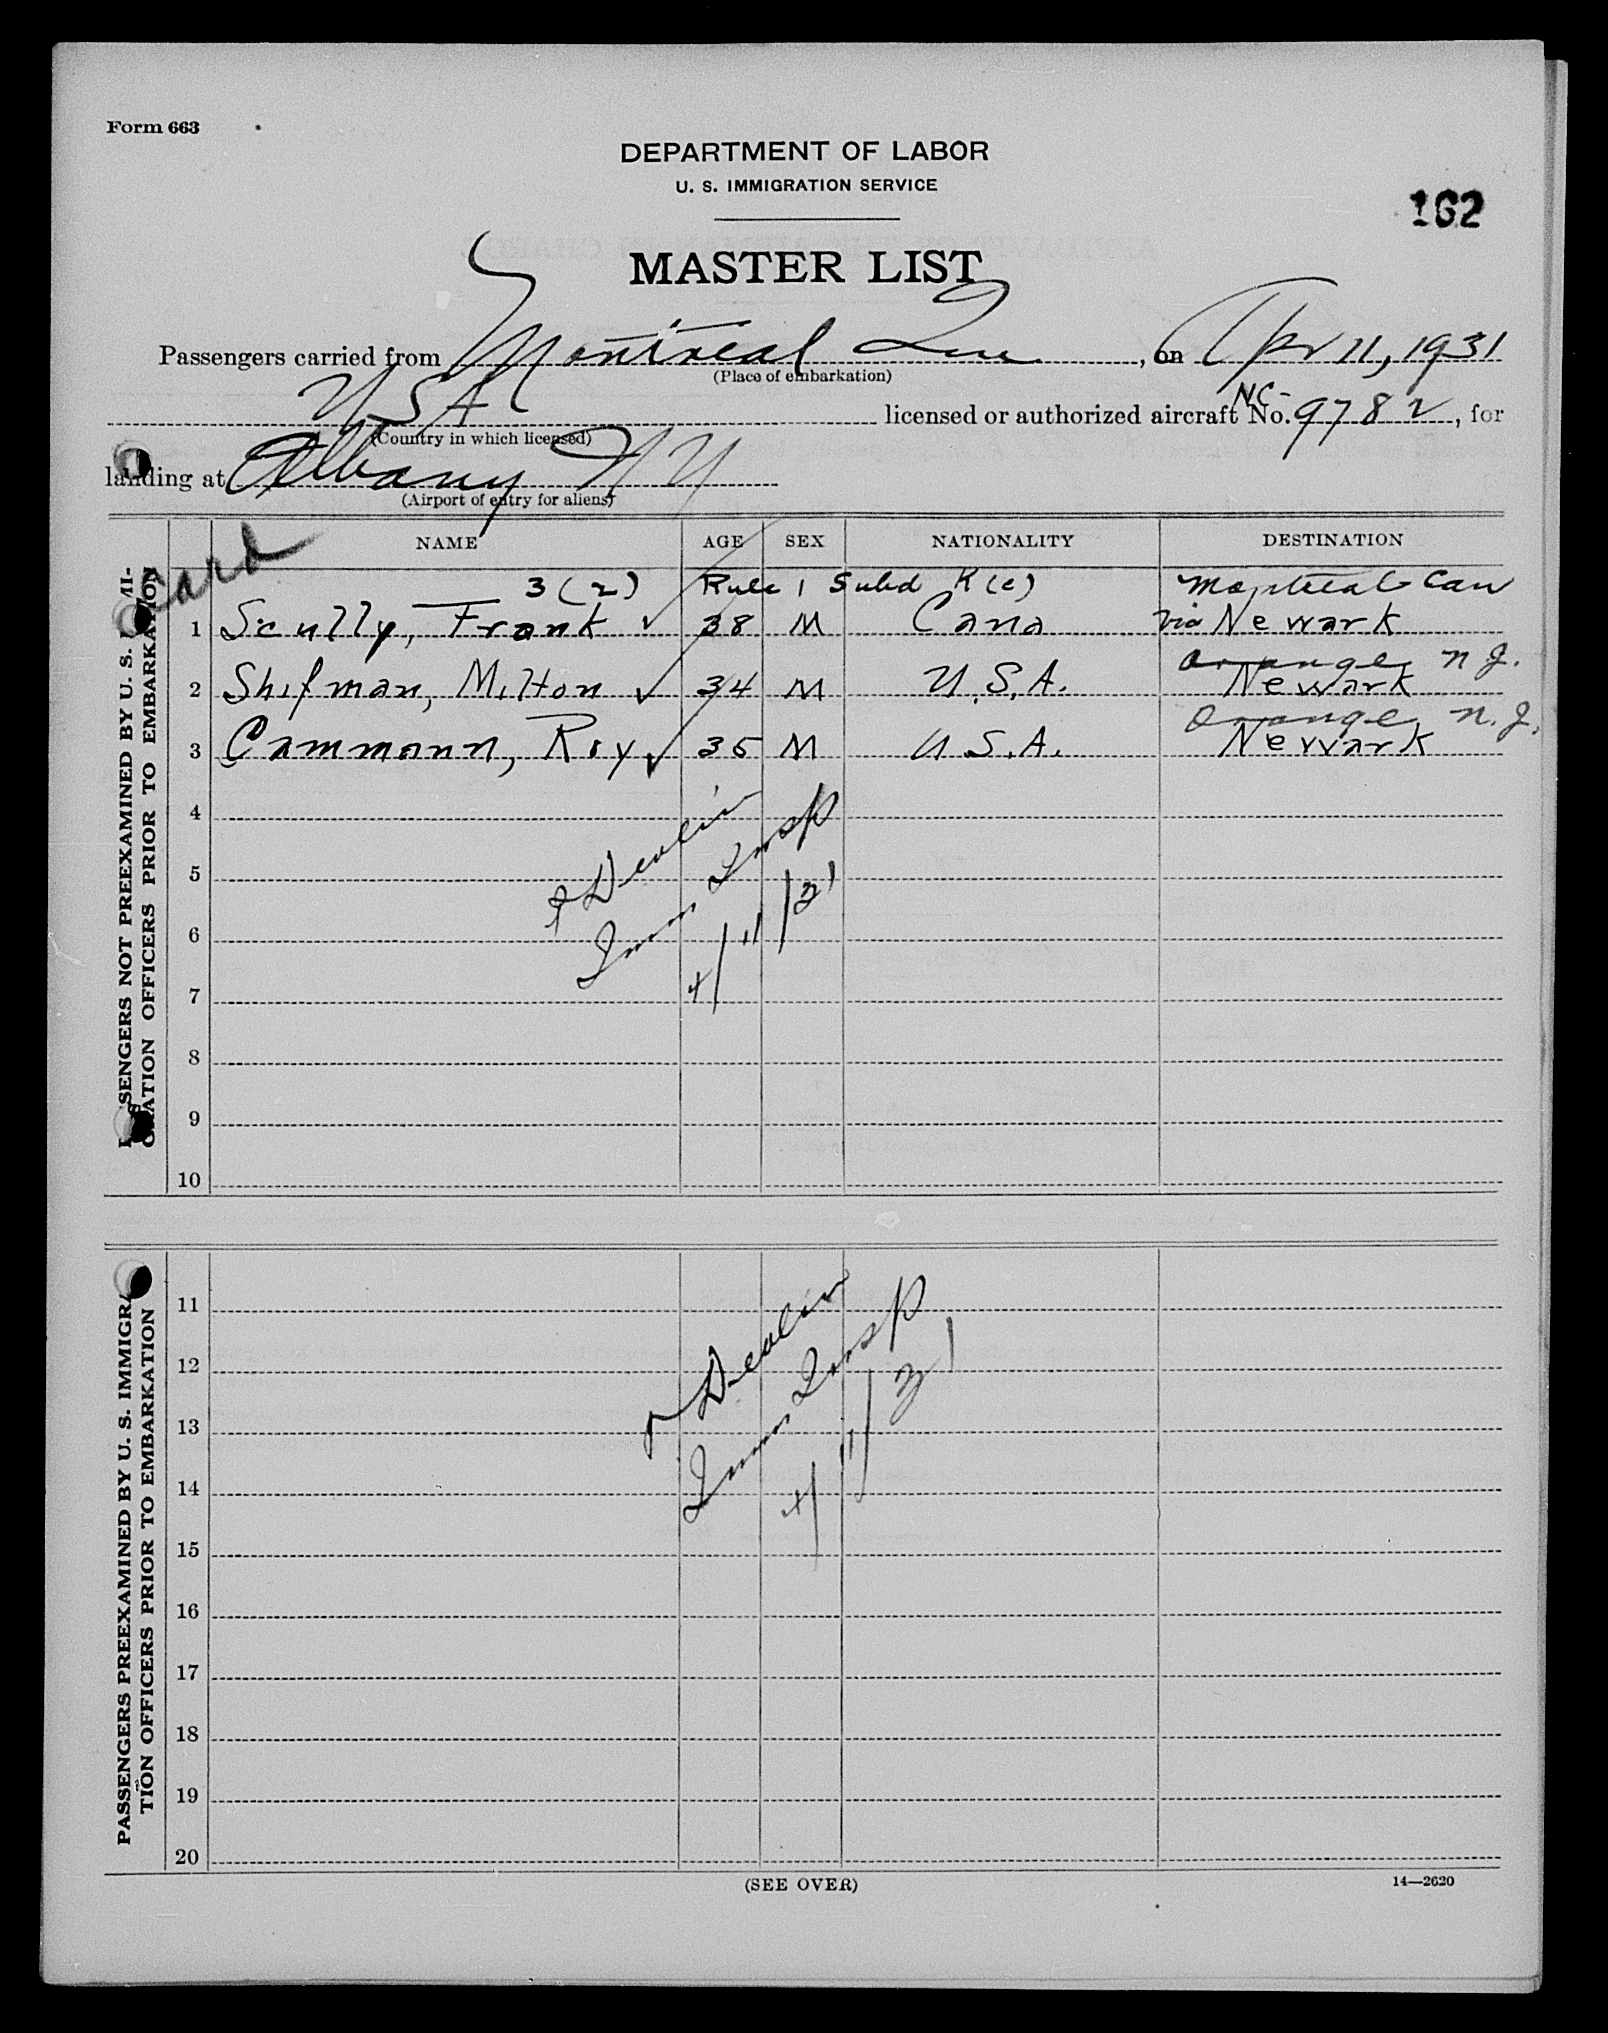 Form 663
DEPARTMENT OF LABOR
U. S. IMMIGRATION SERVICE
162
MASTER LIST
Passengers carried from Montreal Que, on Apr 11, 1931
(Place of embarkation)
USA licensed or authorized aircraft No. NC-9782, for
(Country in which licensed)
landing at Albany NY
(Airport of entry for aliens)
card
NAME AGE SEX NATIONALITY DESTINATION
3(2) Rule 1 Subd K(c) Montreal Can
1 Scully, Frank ✓ 38 M Cana via Newark
Orange N.J.
2 Shifman, Milton ✓ 34 M U.S.A. Newark
Orange N.J.
3 Cammann, Roy ✓ 35 M U.S.A. Newark
4
5
6
7
8
9
10
Devlin
Imm Insp
4/11/31
PASSENGERS NOT PREEXAMINED BY U. S. IMMI-
GRATION OFFICERS PRIOR TO EMBARKATION
11
12
13
14
15
16
17
18
19
20
Devlin
Imm Insp
4/11/31
PASSENGERS PREEXAMINED BY U. S. IMMIGRA-
TION OFFICERS PRIOR TO EMBARKATION
(SEE OVER)
14—2620